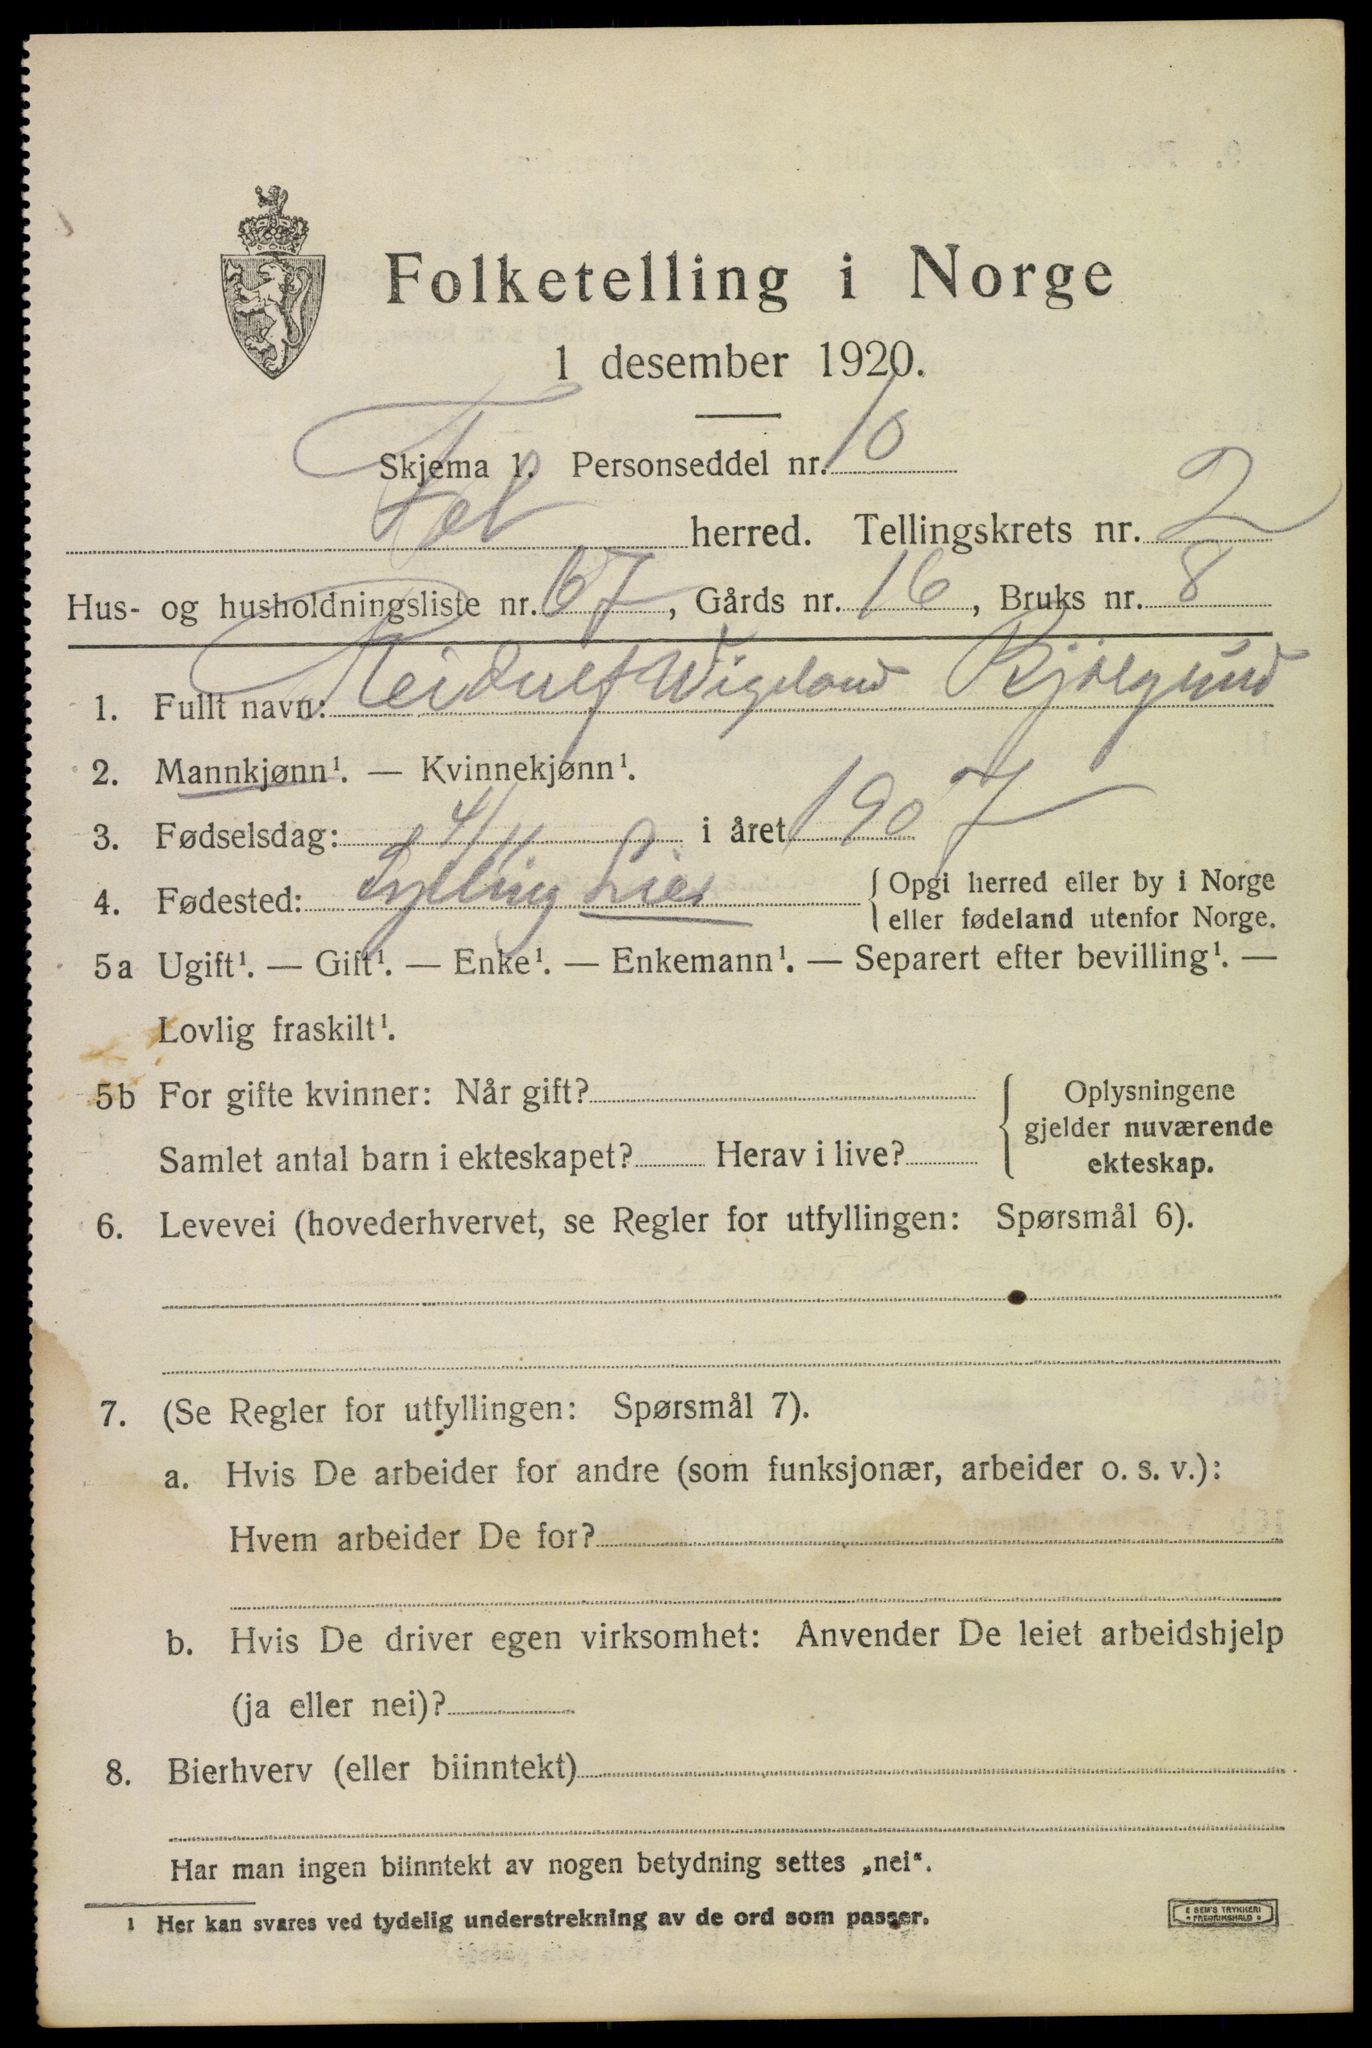 Folketelling i Norge
1 desember 1920.
Skjema 1. Personseddel nr. 10
Fet herred. Tellingskrets nr. 2
Hus- og husholdningsliste nr. 67, Gårds nr. 16, Bruks nr. 8
1. Fullt navn: Reidulf Wigeland
2. Mannkjønn¹. — Kvinnekjønn¹.
3. Fødselsdag: 4/11 i året 1907
4. Fødested: Sylling Lier { Opgi herred eller by i Norge
eller fødeland utenfor Norge.
5a Ugift¹. — Gift¹. — Enke¹. — Enkemann¹. — Separert efter bevilling¹. —
Lovlig fraskilt¹.
5b For gifte kvinner: Når gift? { Oplysningene
gjelder nuværende
Samlet antal barn i ekteskapet? Herav i live? ekteskap.
6. Levevei (hovederhvervet, se Regler for utfyllingen: Spørsmål 6).
7. (Se Regler for utfyllingen: Spørsmål 7).
a. Hvis De arbeider for andre (som funksjonær, arbeider o. s. v.):
Hvem arbeider De for?
b. Hvis De driver egen virksomhet: Anvender De leiet arbeidshjelp
(ja eller nei)?
8. Bierhverv (eller biinntekt)
Har man ingen biinntekt av nogen betydning settes „nei“.
¹ Her kan svares ved tydelig understrekning av de ord som passer.
E SEM'S TRYKKERI
FREDRIKSHALD